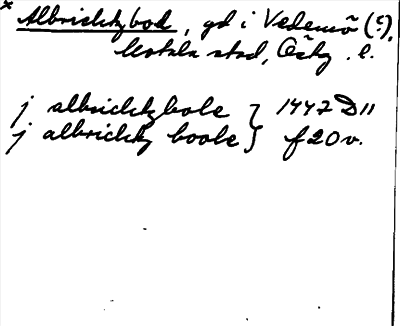 * Albrichtzbod, gd i Vedemö (?),
stad, Östg. l.
j albrichtzbole } 1447 D 11
j albrichtz boole } f 20 v.